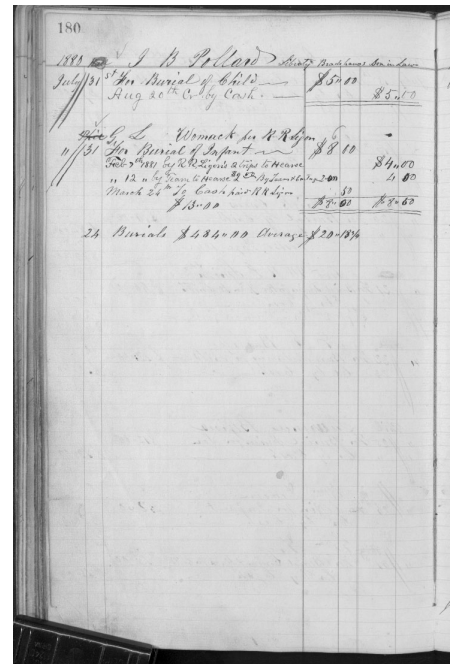 180
1880 J B Pollard Bradshaws Son in Law
July 31st For Burial of Child $5.00
Aug 20th Cr by Cash $5.00
G. L. Womack per R R Ligon
" 31 To For Burial of Infant $8.00
Feb 7th 1881 by R R Ligon 2 trips to Hearse $4.00
" 12 " by Team to Hearse 4 00
March 24th To Cash paid R R Ligon 50
$13.00 $8.50 $8.50
24 Burials $484.00 Average $20.18¾